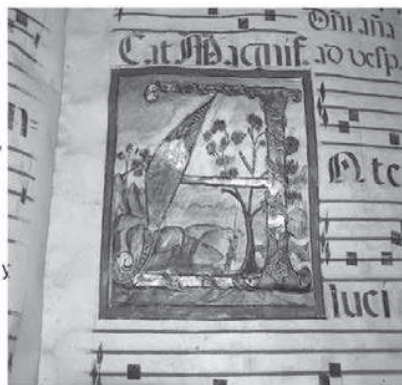 Dñi aña
Cat Magnif. ad vesp.
A N te
luci